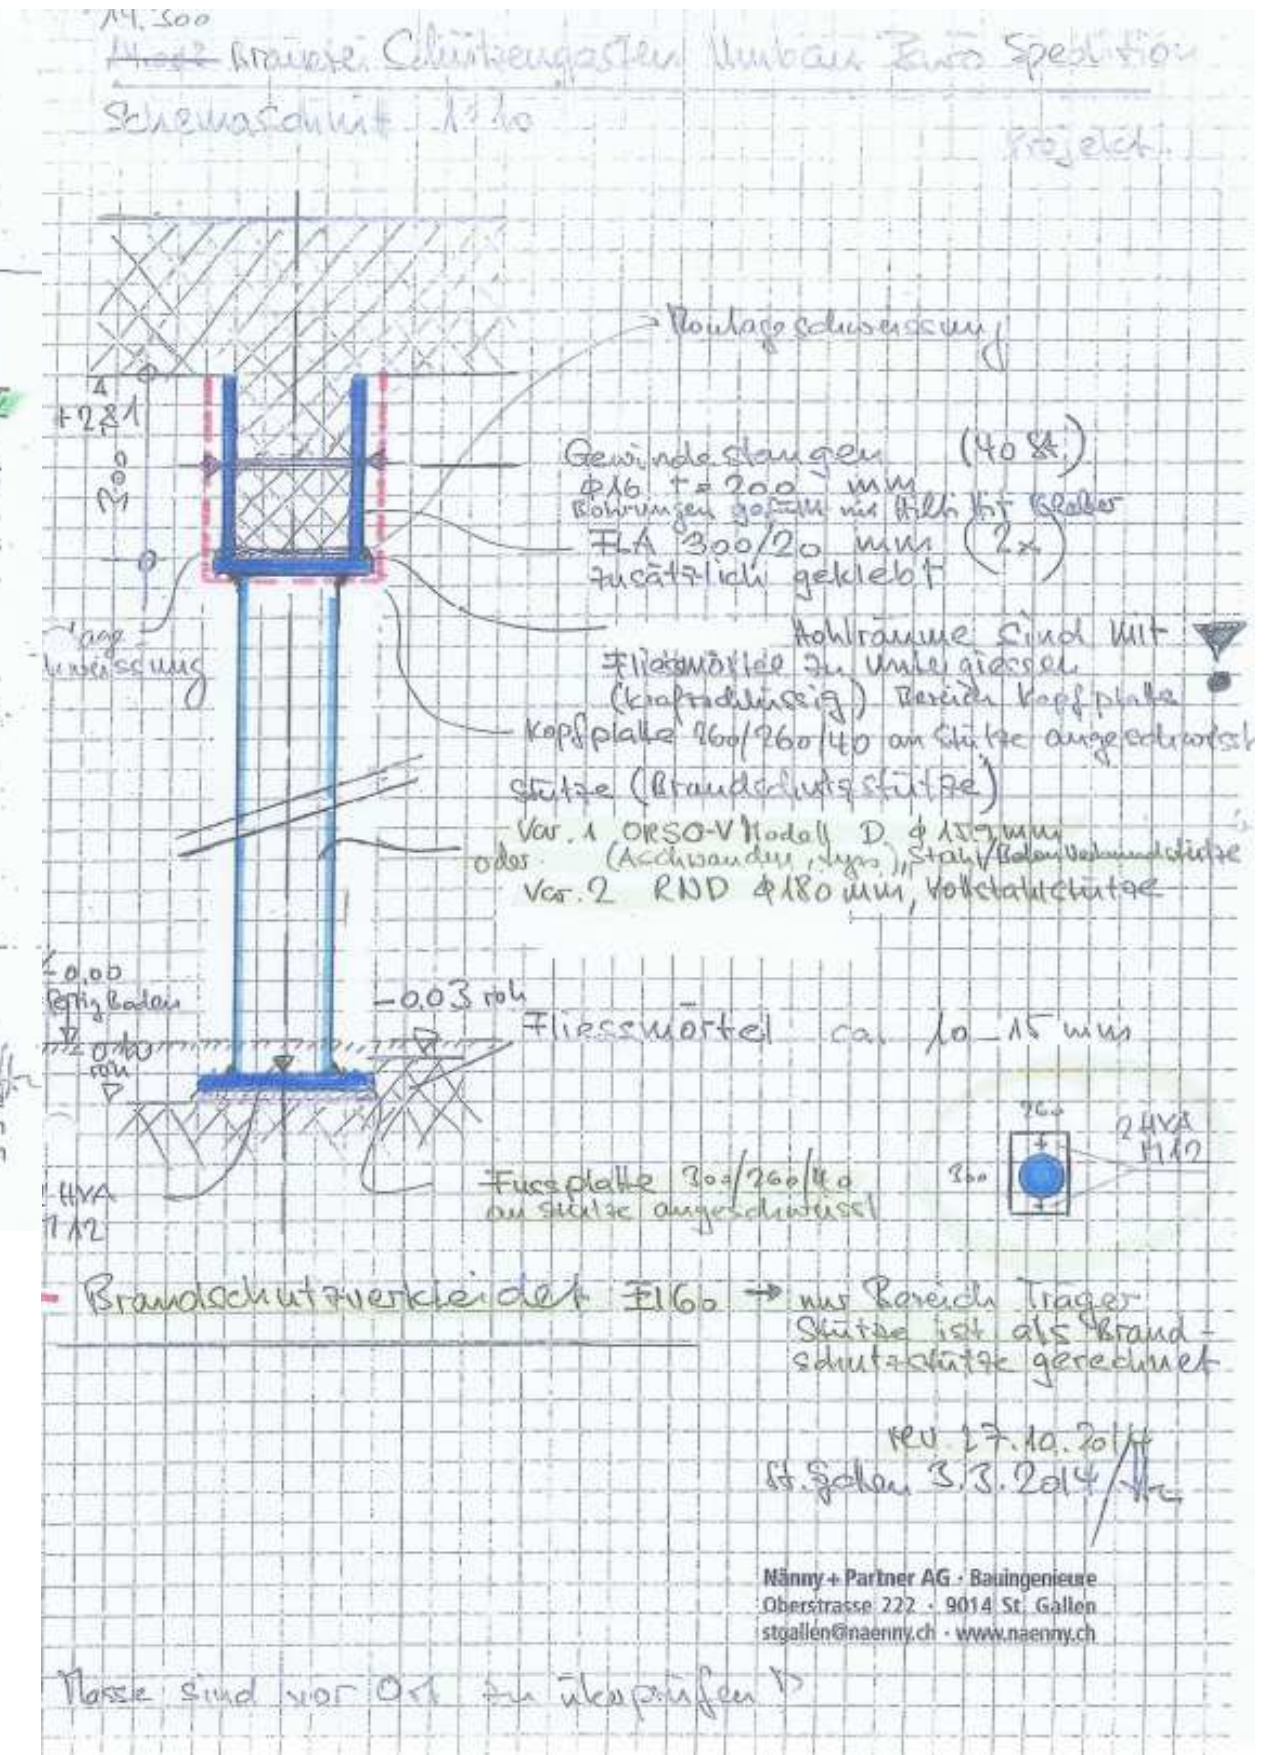 14.300
Brauerei Schützengarten Umbau Büro Spedition
Schemaschnitt 1:10
Projekt
Montageschweissung
+2.81
Gewindestangen (40 St.)
ϕ16 t=200 mm
Bohrungen gefüllt mit Hilti Hit Kleber
FLA 300/20 mm (2x)
zusätzlich geklebt
Hohlräume sind mit
Fliessmörtel zu untergiessen
(kraftschlüssig) Bereich Kopfplatte
Kopfplatte 260/260/40 an Stütze angeschweisst
Stütze (Brandschutzstütze)
Var. 1 ORSO-V Modell D ϕ 159 mm
oder (Aschwanden, Lyss), Stahl/Betonverbundstütze
Var. 2 RND ϕ180 mm, Vollstahlstütze
0.00
Fertig Boden
-0.03 roh
roh
Fliessmörtel ca. 10-15 mm
260
2 HVA
M12
300
HVA
M12
Fussplatte 300/260/40
an Stütze angeschweisst
Brandschutzverkleidet EI60 → nur Bereich Träger
Stütze ist als Brand-
schutzstütze gerechnet
rev. 27.10.2014
St. Gallen 3.3.2014
Nänny + Partner AG · Bauingenieure
Oberstrasse 222 · 9014 St. Gallen
stgallen@naenny.ch · www.naenny.ch
Masse sind vor Ort zu überprüfen!